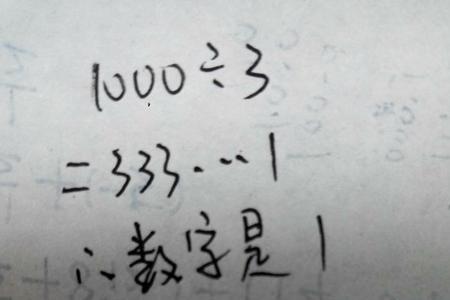 1000÷3
=333……1
∴数字是1